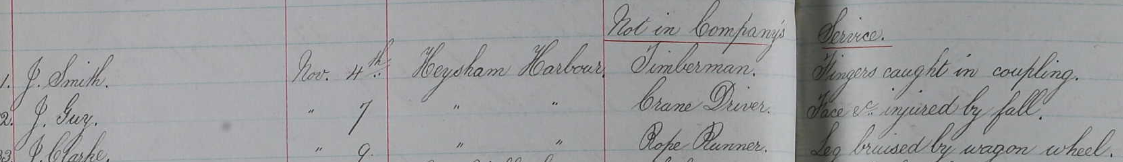 Not in Company's Service.
1. J. Smith. Nov. 4th. Heysham Harbour. Timberman. Fingers caught in coupling.
2. J. Guy. " 7 " " Crane Driver. Face &c. injured by fall.
3. J. Clarke. " 9. " " Rope Runner. Leg bruised by wagon wheel.